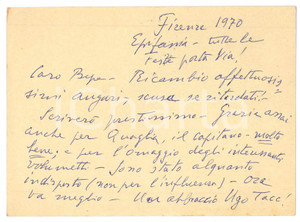 Firenze 1970
Epifania - tutte le
feste porta via!
Caro Bepe - Ricambio affettuosis
simi auguri, scusa se ritardati!-
Scriverò prestissimo - Grazie assai
anche per Quaglia, il capitano - molto
bene, e per l'omaggio degli interessanti
volumetti - Sono stato alquanto
indisposto (non per l'influenza) - Ora
va meglio - Un abbraccio Ugo